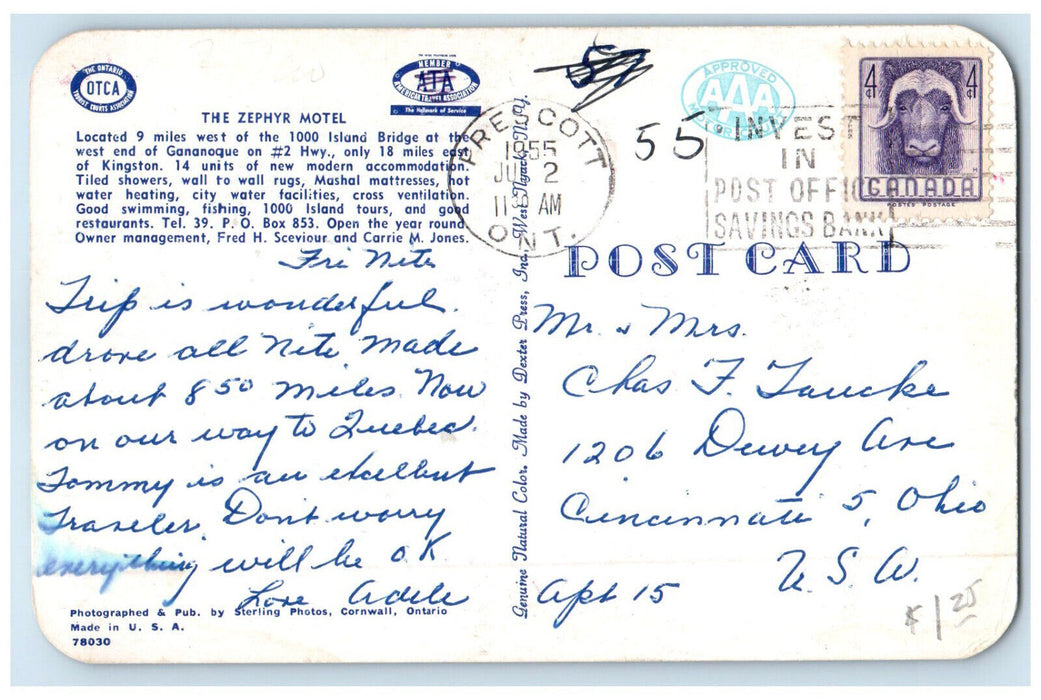 THE ONTARIO
OTCA
TOURIST COURTS ASSOCIATION
MEMBER
ATA
AMERICAN TRAVEL ASSOCIATION
The Hallmark of Service
THE ZEPHYR MOTEL
Located 9 miles west of the 1000 Island Bridge at the
west end of Gananoque on #2 Hwy., only 18 miles east
of Kingston. 14 units of new modern accommodation.
Tiled showers, wall to wall rugs, Mashal mattresses, hot
water heating, city water facilities, cross ventilation.
Good swimming, fishing, 1000 Island tours, and good
restaurants. Tel. 39. P. O. Box 853. Open the year round.
Owner management, Fred H. Sceviour and Carrie M. Jones.
Fri Nite
Trip is wonderful.
drove all Nite made
about 850 miles. Now
on our way to Quebec.
Tommy is an excellent
Traveler. Don't worry
everything will be O.K.
Love Adele
Photographed & Pub. by Sterling Photos, Cornwall, Ontario
Made in U. S. A.
78030
Genuine Natural Color. Made by Dexter Press, Inc., West Nyack, N. Y.
PRESCOTT
1955
JUL 2
11 AM
ONT.
55
APPROVED
AAA
INVEST
IN
POST OFFICE
SAVINGS BANK
4¢ 4¢
CANADA
POSTES POSTAGE
POST CARD
Mr. & Mrs.
Chas F. Taucke
1206 Dewey Ave
Cincinnati 5, Ohio
U. S. A.
Apt 15